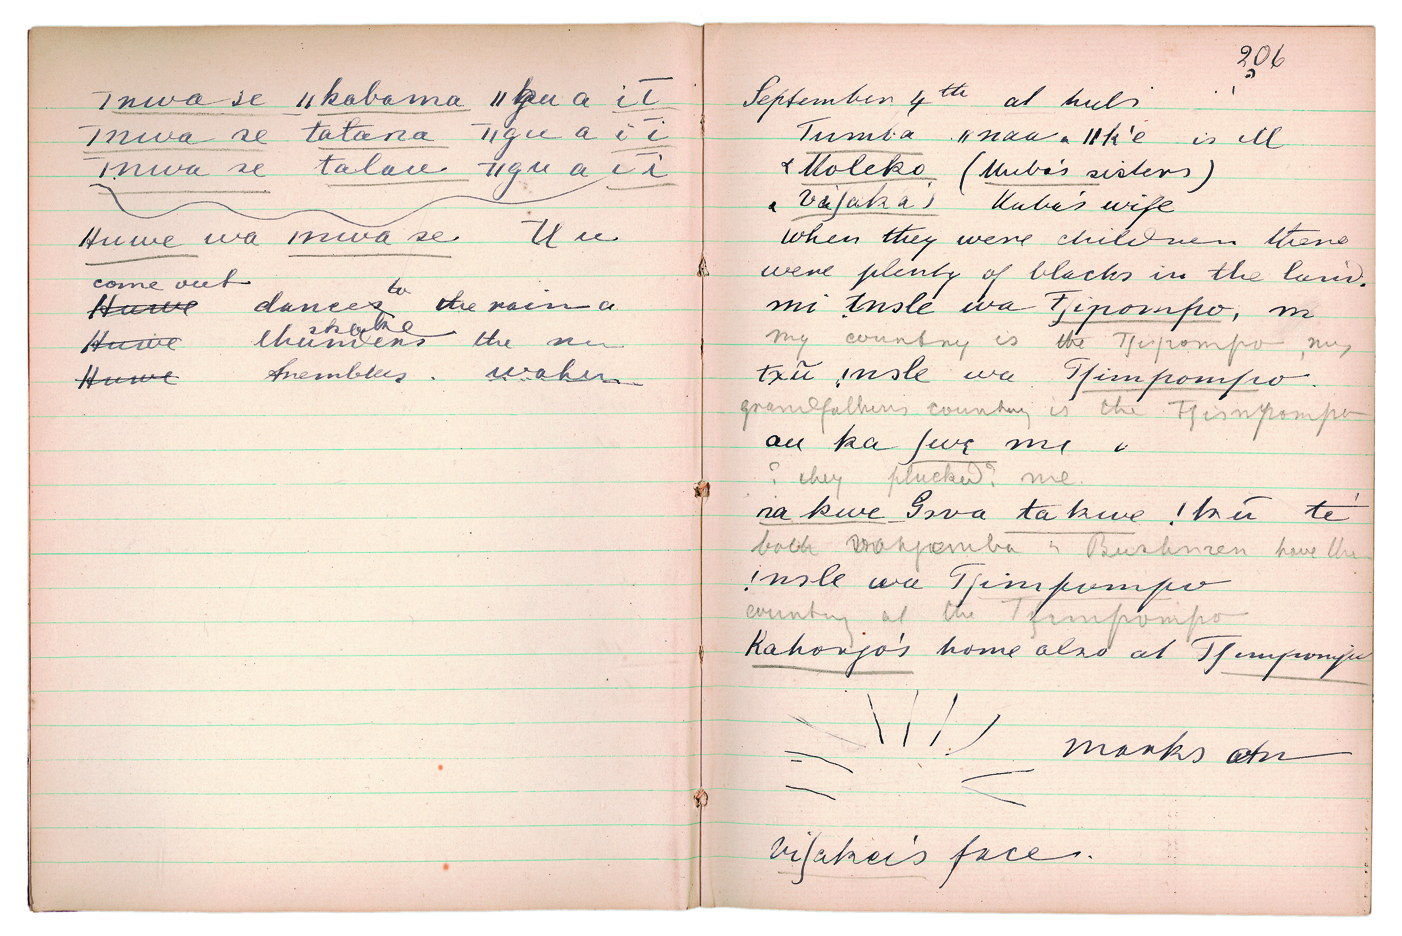 Tnwa se ǁkabama ǁgu a iī
Tnwa se tatana ǁgu a iī
Tnwa se talau ǁgu a iī
Huwe wa mwa se
come out
Huwe dances to the rain a
shake
Huwe thunders the
Huwe trembles.
206
September 4th at hubi
Tumba ǁnaa ǁk'e is M
& Moleko (Kuba's sisters)
& Vaʃaka's Kuba's wife
When they were children there
were plenty of blacks in the land.
mi !nsle wa Tʃipompo, m
my country is the Tʃipompo, my
txū !nsle wa Tʃimpompo.
grandfathers country is the Tʃimpompo
au ka ʃwe me
? they plucked? me.
sa kwe Gova ta kwe !kū té
both & Bushmen have the
!nsle wa Tʃimpompo
country at the Tʃimpompo
Kahonjo's home also at Tʃimpompo
marks on
Viʃaka's face.